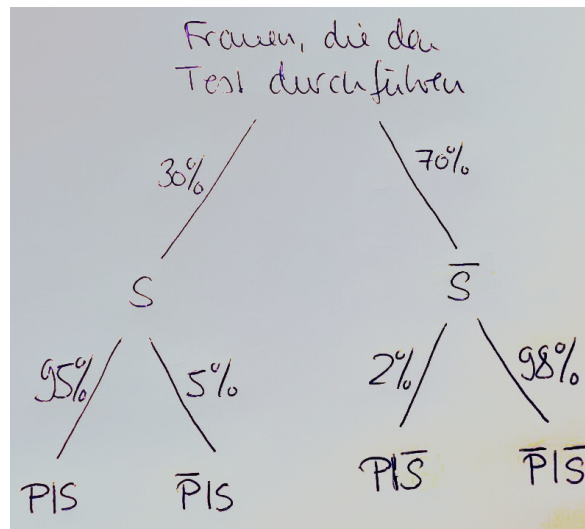 Frauen, die den
Test durchführen
30%
70%
S
S̅
95%
5%
2%
98%
P|S
P̅|S
P|S̅
P̅|S̅